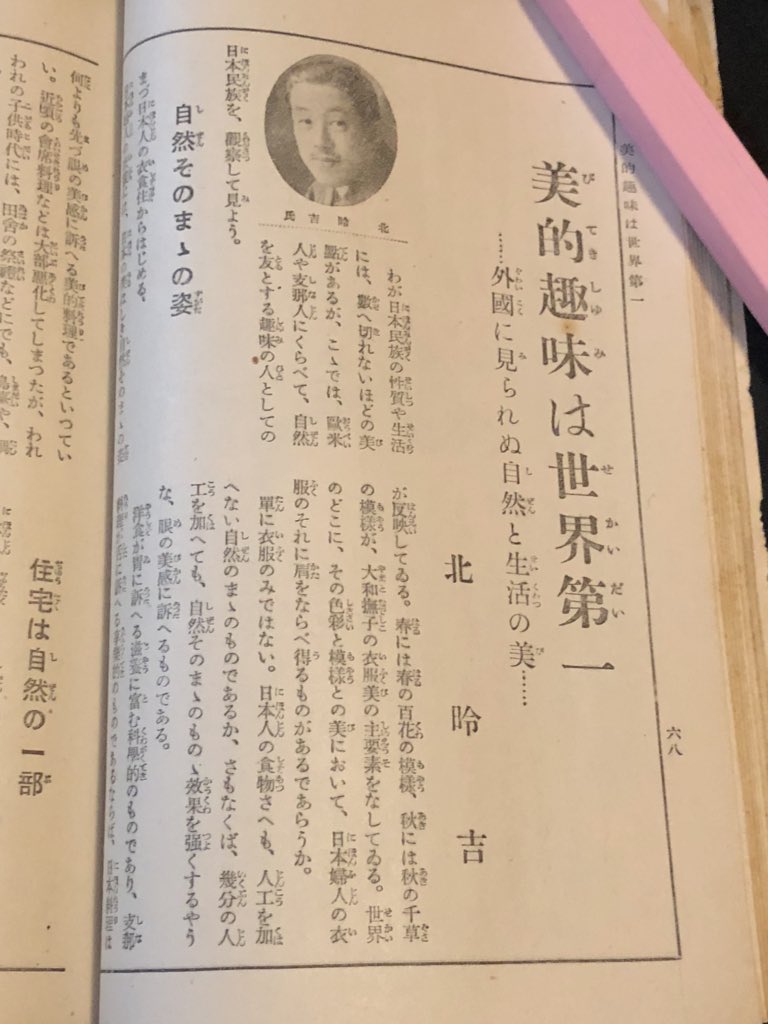 美的趣味は世界第一
六八
美的趣味は世界第一
……外國に見られぬ自然と生活の美……
北昤吉
北昤吉氏
わが日本民族の性質や生活
には、數へ切れないほどの美
點があるが、こゝでは、歐米
人や支那人にくらべて、自然
を友とする趣味の人としての
日本民族を、觀察して見よう。
自然そのまゝの姿
まづ日本人の衣食住からはじめる。
が反映してゐる。春には春の百花の模樣、秋には秋の千草
の模樣が、大和撫子の衣服美の主要素をなしてゐる。世界
のどこに、その色彩と模樣との美において、日本婦人の衣
服のそれに肩をならべ得るものがあるであらうか。
單に衣服のみではない。日本人の食物さへも、人工を加
へない自然のまゝのものであるか、さもなくば、幾分の人
工を加へても、自然そのまゝのものゝ效果を強くするやう
な、眼の美感に訴へるものである。
洋食が胃に訴へる滋養に富む科學的のものであり、支那
のものであるならば、日本料理は
何よりも先づ眼の美感に訴へる美的料理であるといつてい
い。近頃の會席料理などは大部惡化してしまつたが、われ
われの子供時代には、田舍の祭禮などにでも、
住宅は自然の一部